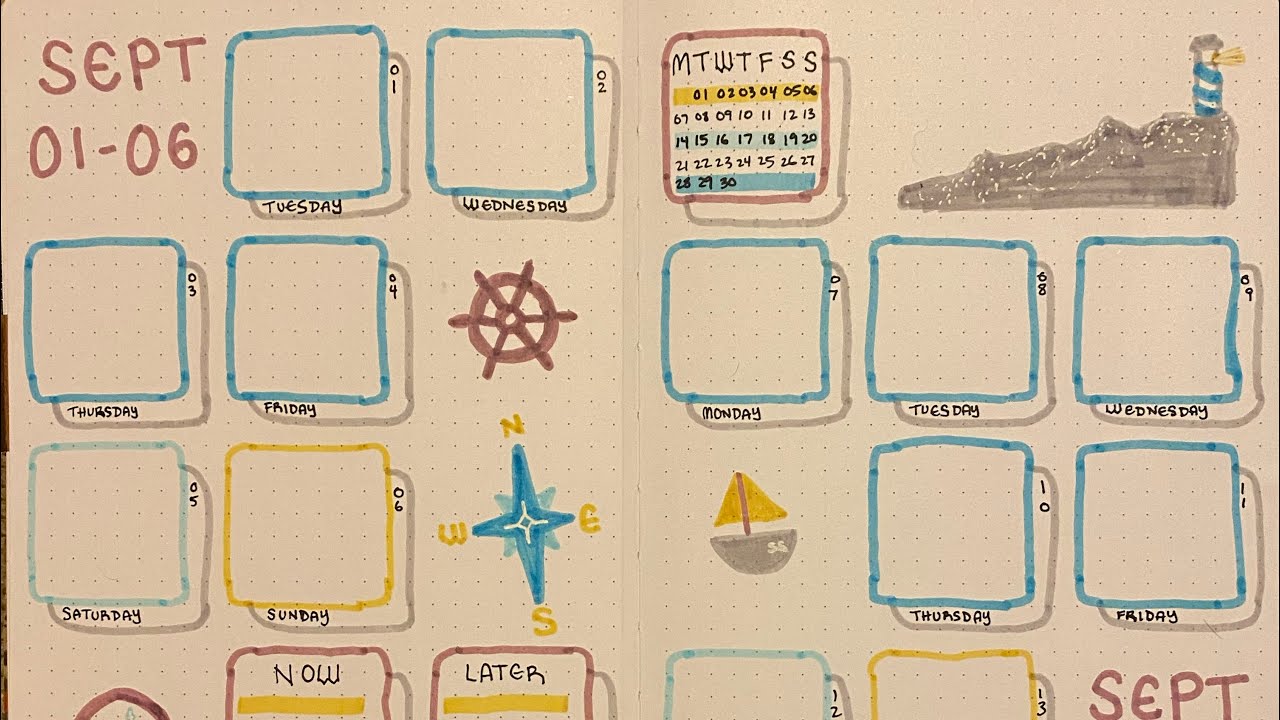 SEPT
01-06
01
TUESDAY
02
WEDNESDAY
03
THURSDAY
04
FRIDAY
05
SATURDAY
06
SUNDAY
N
W E
S
NOW
LATER
M T W T F S S
01 02 03 04 05 06
07 08 09 10 11 12 13
14 15 16 17 18 19 20
21 22 23 24 25 26 27
28 29 30
07
MONDAY
08
TUESDAY
09
WEDNESDAY
10
THURSDAY
11
FRIDAY
12
13
SEPT